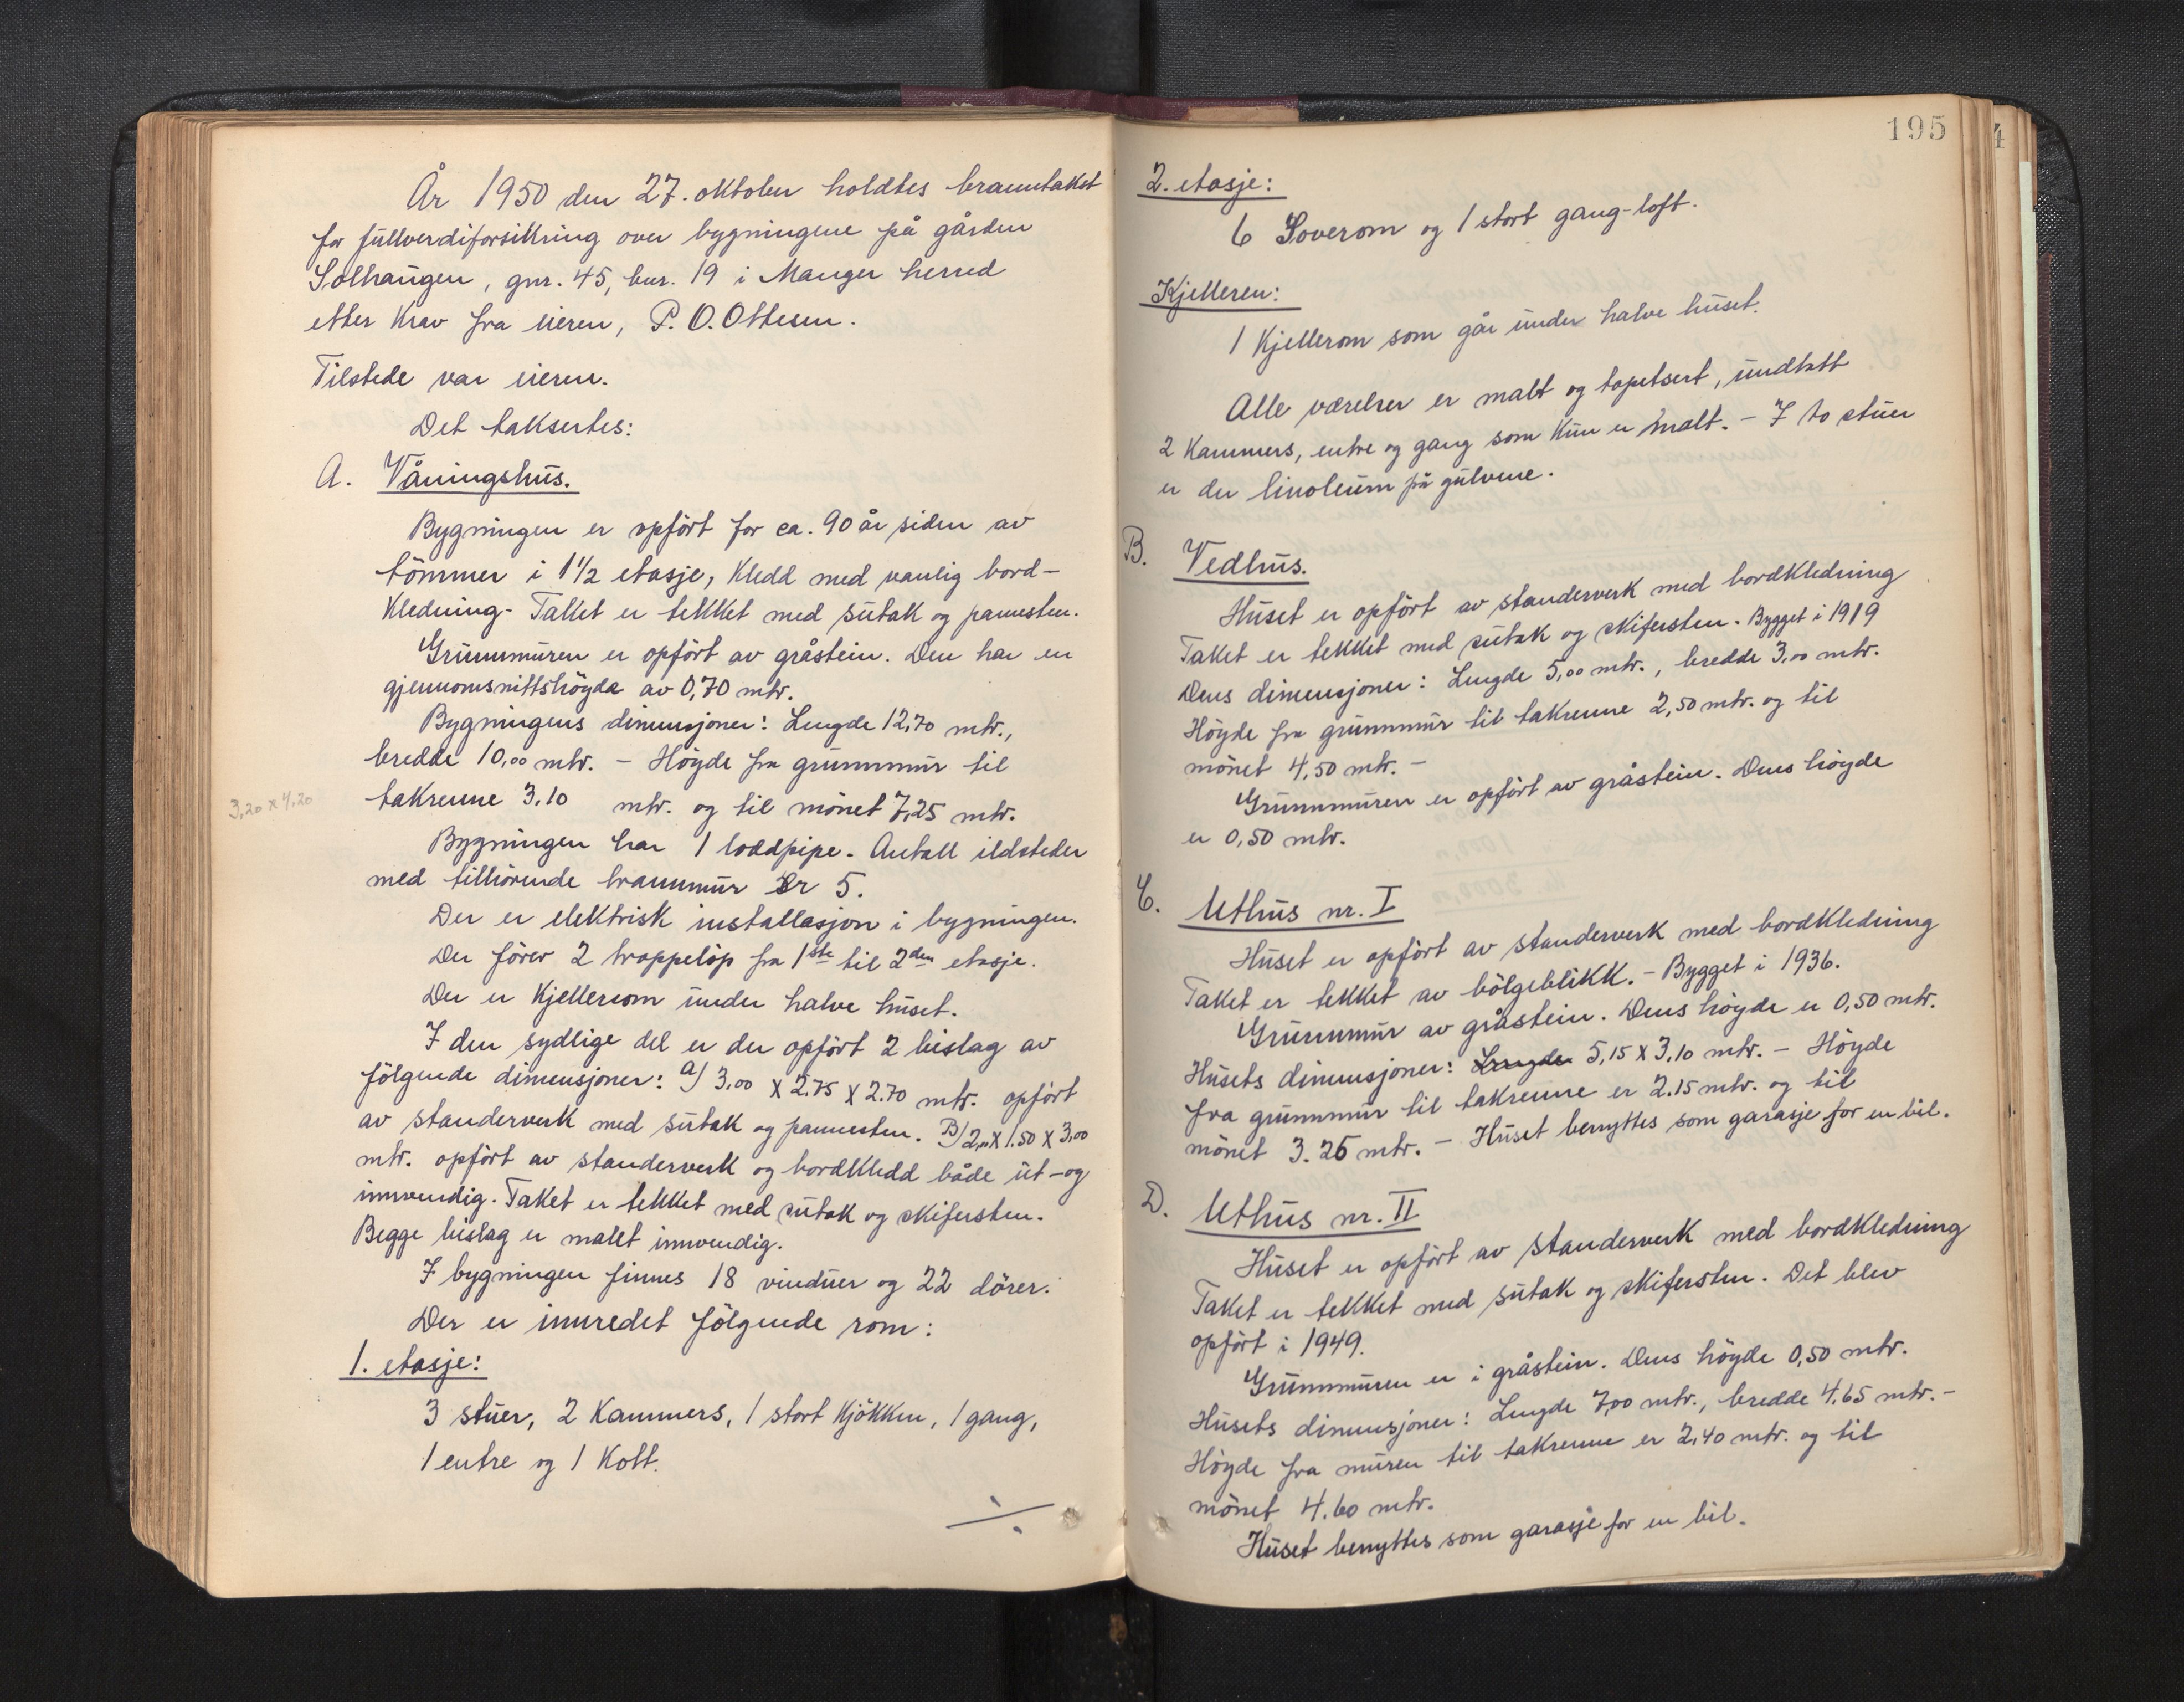 År 1950 den 27. oktober holdtes branntakst
for fullverdiforsikring over bygningene på gården
Solhaugen, gnr. 45, bnr. 19 i Manger herred
etter krav fra eieren, P. O. Ottesen.
Tilstede var eieren.
Det taksertes:
A. Våningshus.
Bygningen er opført for ca. 90 år siden av
tømmer i 1 1/2 etasje, kledd med vanlig bord-
kledning- Taket er tekket med sutak og pannesten.
Grunnmuren er opført av gråstein. Den har en
gjennomsnittshøyde av 0,70 mtr.
Bygningens dimensjoner: Lengde 12,70 mtr.,
bredde 10,00 mtr. - Høyde fra grunnmur til
3,20 x 4,20
takrenne 3.10 mtr. og til mønet 7,25 mtr.
Bygningen har 1 loddpipe. Antall ildsteder
med tilhørende brannmur er 5.
Der er elektrisk installasjon i bygningen.
Der fører 2 trappeløp fra 1ste til 2den etasje.
Der er kjellerrom under halve huset.
I den sydlige del er der opført 2 bislag av
følgende dimensjoner: a) 3,00 x 2.75 x 2.70 mtr. opført
av standerverk med sutak og pannesten. B) 2,00 x 1.50 x 3,00
mtr. opført av standerverk og bordkledd både ut- og
innvendig. Taket er tekket med sutak og skifersten.
Begge bislag er malet innvendig.
I bygningen finnes 18 vinduer og 22 dører.
Der er innredet følgende rom:
1. etasje:
3 stuer, 2 kammers, 1 stort kjøkken, 1 gang,
1 entre og 1 kott.
÷
195
4
2. etasje:
6 Soverom og 1 stort gang-loft.
Kjelleren:
1 kjellerom som går under halve huset.
Alle værelser er malt og tapetsert, undtatt
2 kammers, entre og gang som kun er malt. - I to stuer
er der linoleum på gulvene.
B. Vedhus.
Huset er opført av standerverk med bordkledning
Taket er tekket med sutak og skifersten. Bygget i 1919
Dens dimensjoner: Lengde 5,00 mtr., bredde 3,00 mtr.
Høyde fra grunnmur til takrenne 2,50 mtr. og til
mønet 4,50 mtr. -
Grunnmuren er opført av gråstein. Dens høyde
er 0,50 mtr.
C. Uthus nr. I
Huset er opført av standerverk med bordkledning
Taket er tekket av bølgeblikk. - Bygget i 1936.
Grunnmur av gråstein. Dens høyde er 0,50 mtr.
Husets dimensjoner: Lengde 5,15 x 3,10 mtr. - Høyde
fra grunnmur til takrenne er 2.15 mtr. og til
mønet 3.25 mtr. - Huset benyttes som garasje for en bil.
D. Uthus nr. II
Huset er opført av standerverk med bordkledning
Taket er tekket med sutak og skifersten. Det blev
opført i 1949.
Grunnmuren er i gråstein. Dens høyde 0,50 mtr.
Husets dimensjoner: Lengde 7,00 mtr., bredde 4,65 mtr. -
Høyde fra muren til takrenne er 2,40 mtr. og til
mønet 4.60 mtr.
Huset benyttes som garasje for en bil.